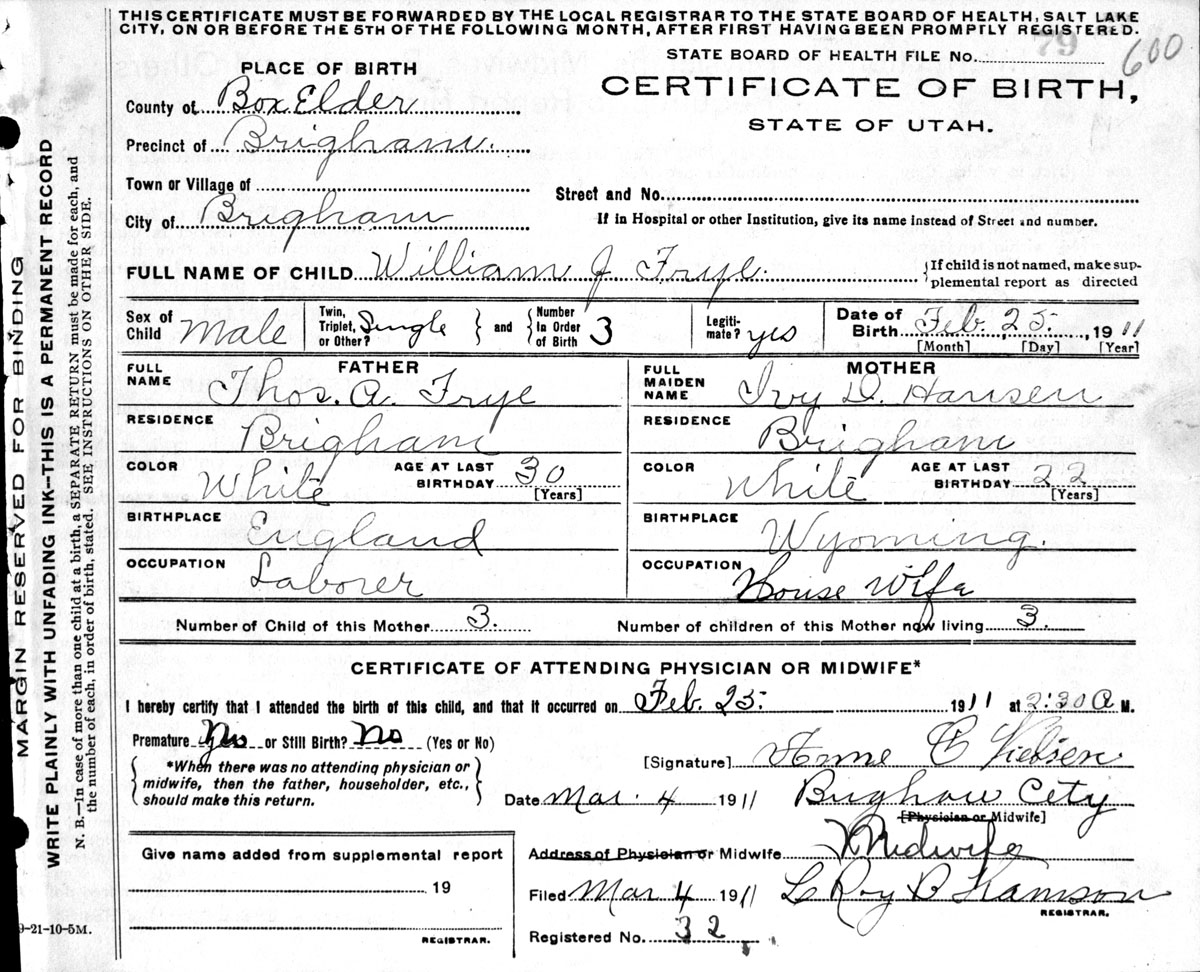 THIS CERTIFICATE MUST BE FORWARDED BY THE LOCAL REGISTRAR TO THE STATE BOARD OF HEALTH, SALT LAKE
CITY, ON OR BEFORE THE 5TH OF THE FOLLOWING MONTH, AFTER FIRST HAVING BEEN PROMPTLY REGISTERED.
79
600
STATE BOARD OF HEALTH FILE No.
PLACE OF BIRTH
CERTIFICATE OF BIRTH,
STATE OF UTAH.
County of Box Elder
Precinct of Brigham.
Town or Village of
Street and No.
City of Brigham
If in Hospital or other Institution, give its name instead of Street and number.
FULL NAME OF CHILD William J Frye.
{If child is not named, make sup-
plemental report as directed
Sex of Child Male
Twin, Triplet, or Other? Single } and { Number In Order of Birth 3
Legiti-mate? yes
Date of Birth Feb. 25., 1911
[Month] [Day] [Year]
FATHER
FULL NAME Thos. A. Frye
MOTHER
FULL MAIDEN NAME Ivy D. Hansen
RESIDENCE Brigham
RESIDENCE Brigham
COLOR White AGE AT LAST BIRTHDAY 30 [Years]
COLOR White AGE AT LAST BIRTHDAY 22 [Years]
BIRTHPLACE England
BIRTHPLACE Wyoming.
OCCUPATION Laborer
OCCUPATION House Wife
Number of Child of this Mother 3.
Number of children of this Mother now living 3.
CERTIFICATE OF ATTENDING PHYSICIAN OR MIDWIFE*
I hereby certify that I attended the birth of this child, and that it occurred on Feb. 25. 1911 at 2:30 A M.
Premature or Still Birth? No (Yes or No)
{ *When there was no attending physician or
midwife, then the father, householder, etc.,
should make this return. }
[Signature] Anne
Date Mar. 4 1911 Brigham City
[Physician or Midwife]
Address of Physician or Midwife Midwife
Give name added from supplemental report
19
REGISTRAR.
Filed Mar 4 1911 Le Roy B
REGISTRAR.
Registered No. 32
9-21-10-5M.
MARGIN RESERVED FOR BINDING
WRITE PLAINLY WITH UNFADING INK—THIS IS A PERMANENT RECORD
N. B.—In case of more than one child at a birth, a SEPARATE RETURN must be made for each, and
the number of each, in order of birth, stated. SEE INSTRUCTIONS ON OTHER SIDE.